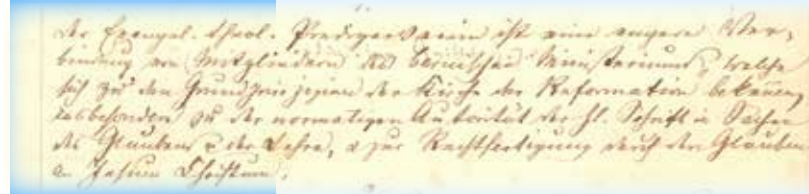 Der Evangel. theol. Predigerverein ist eine engere Ver-
bindung von Mitgliedern des bernischen Ministeriums, welche
sich zu den Grundprinzipien der Kirche der Reformation bekennen,
insbesondere zu der normativen Autorität der hl. Schrift in Sachen
des Glaubens u. der Lehre, u zur Rechtfertigung durch den Glauben
an Jesum Christum.